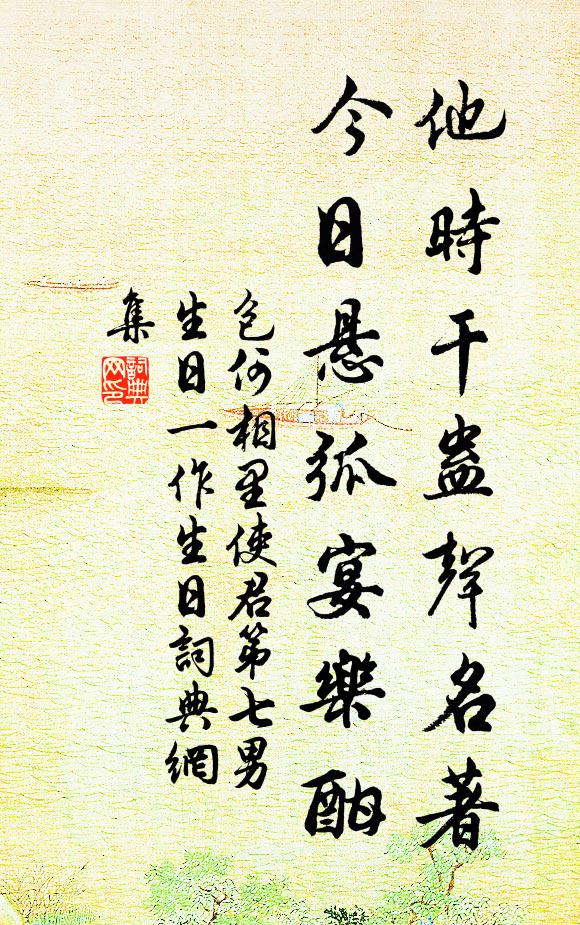 他時干蠱聲名著
今日悬弧宴樂酣
包何相里使君第七男
生日一作生日詞典網
集
詞典
网印